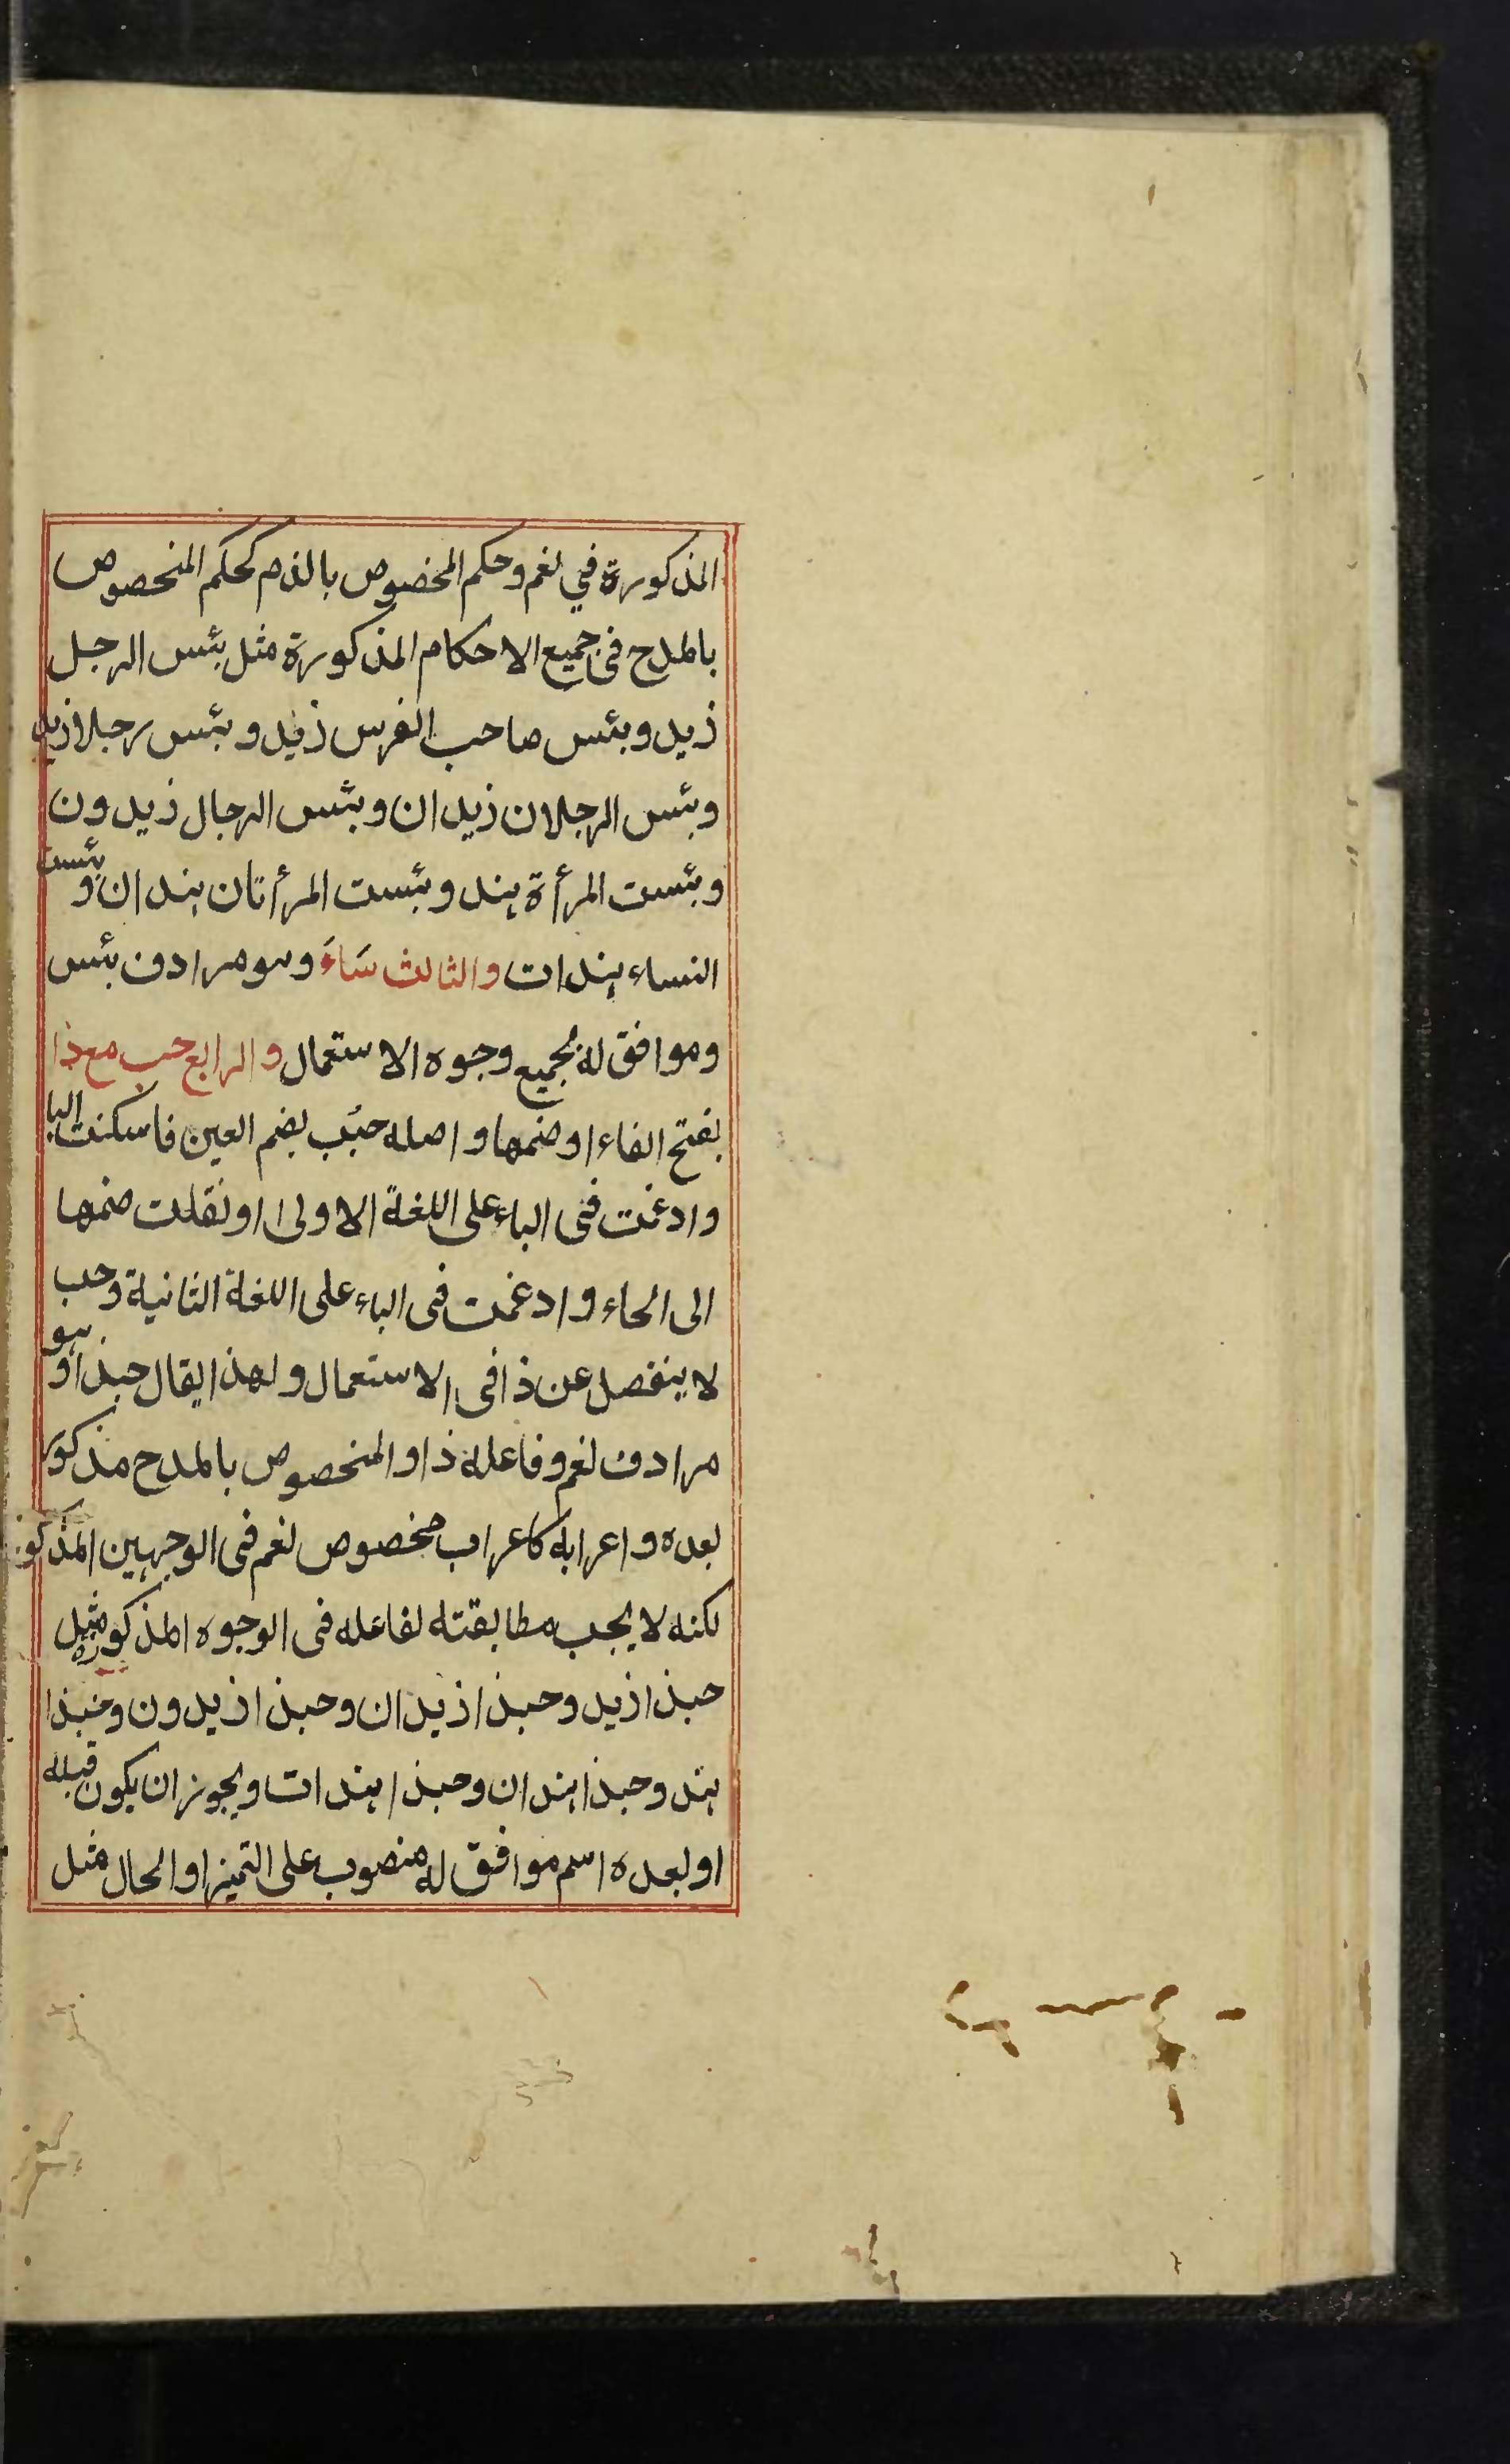 المذكورة في نعم وحكم المخصوص بالذم كحكم المخصوص
بالمدح فى جميع الاحكام المذكورة مثل بئس الرجل
زيد وبئس صاحب الفرس زيد وبئس رجلا زيد
وبئس الرجلان زيدان وبئس الرجال زيدون
وبئست المرأة هند وبئست المرأتان هندان وبئست
النساء هندات والثالث سَاءَ وهو مرادف بئس
وموافق له بجميع وجوه الاستعمال والرابع حب مع ذا
بفتح الفاء او ضمها واصله حبُب بضم العين فاسكنت البا
وادغمت فى الباء على اللغة الاولى او نقلت ضمها
الى الحاء وادغمت فى الباء على اللغة الثانية وحب
لا ينفصل عن ذا فى الاستعمال ولهذا يقال حبذا وهو
مرادف نعم وفاعله ذا والمخصوص بالمدح مذكور
بعده واعرابه كاعراب مخصوص نعم فى الوجهين المذكور
لكنه لا يجب مطابقته لفاعله فى الوجوه المذكورة مثل
حبذا زيد وحبذا زيدان وحبذا زيدون وحبذا
هند وحبذا هندان وحبذا هندات ويجوز ان يكون قبله
او بعده اسم موافق له منصوب على التميز او الحال مثل